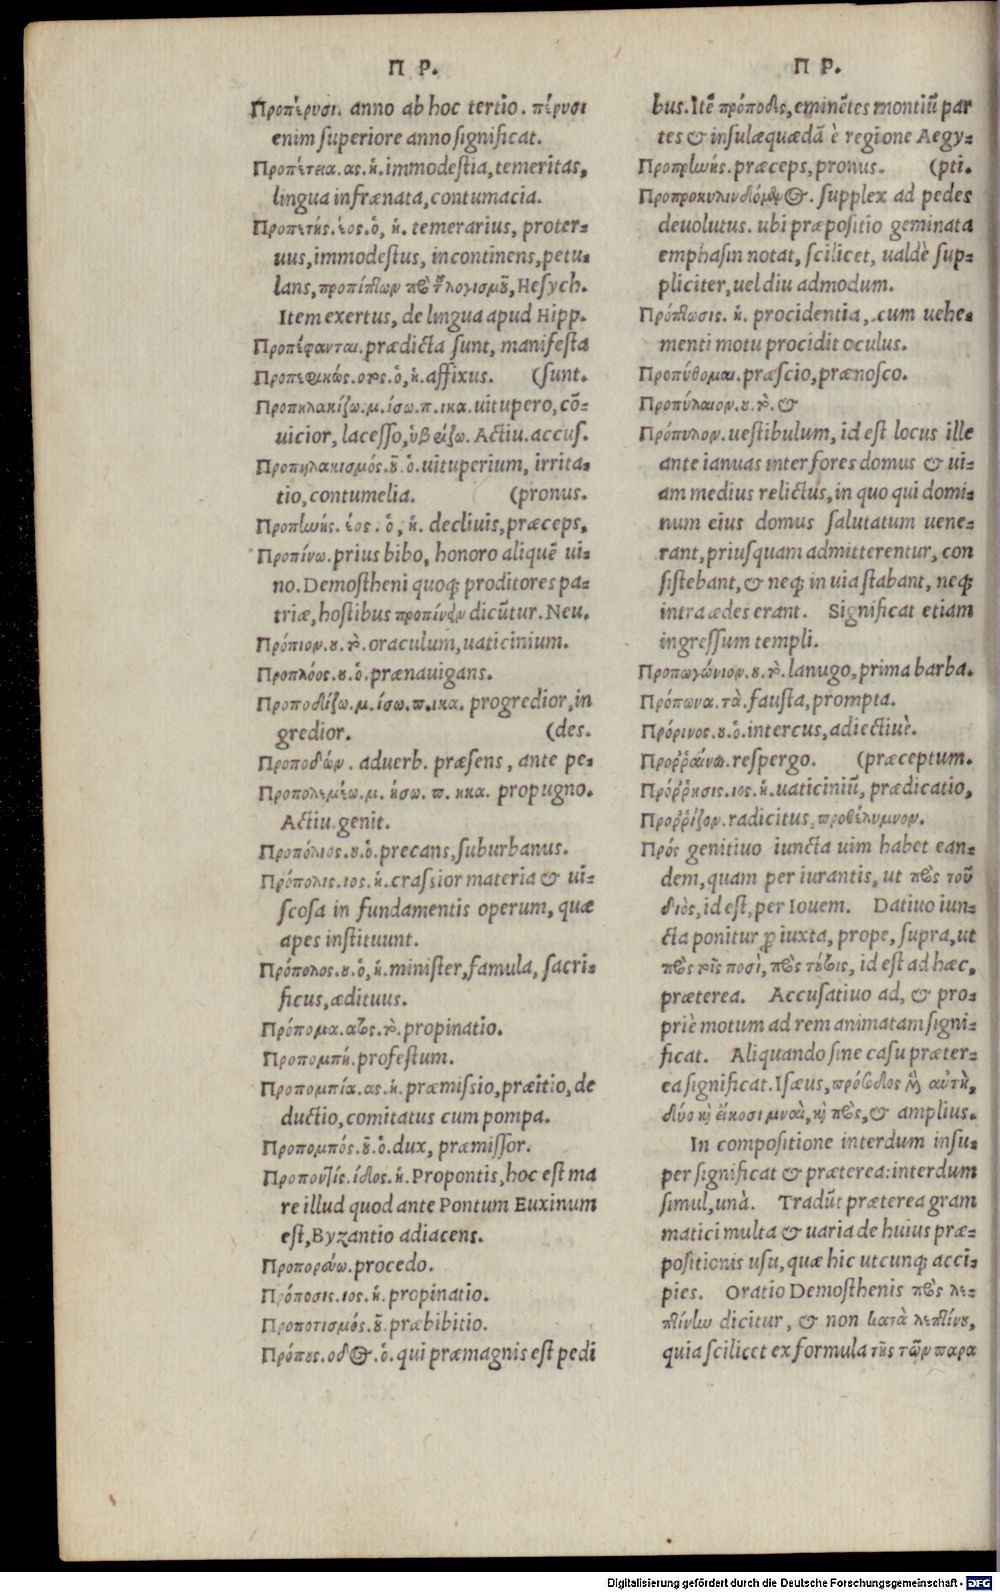 Π Ρ.
Προπέρυσι. anno ab hoc tertio. πέρυσι
enim superiore anno significat.
Προπέτεια. ας. ἡ. immodestia, temeritas,
lingua infrænata, contumacia.
Προπετής. έος. ὁ, ἡ. temerarius, proter-
uus, immodestus, incontinens, petu-
lans, προπίπτων πρὸ τ̃ λογισμοῦ, Hesych.
Item exertus, de lingua apud Hipp.
Προπέφανται. prædicta sunt, manifesta
Προπεφυκώς. οτος. ὁ, ἡ. affixus. (sunt.
Προπηλακίζω. μ. ίσω. π. ικα. uitupero, cō-
uicior, lacesso, ὑβρίζω. Actiu. accus.
Προπηλακισμός. οῦ. ὁ. uituperium, irrita-
tio, contumelia. (pronus.
Προπρηνής. έος. ὁ, ἡ. decliuis, præceps,
Προπίνω. prius bibo, honoro aliquē ui-
no. Demostheni quoq; proditores pa-
triæ, hostibus προπίνειν dicūtur. Neu.
Πρόπιον. ου. τὸ. oraculum, uaticinium.
Προπλόος. ου. ὁ. prænauigans.
Προποδίζω. μ. ίσω. π. ικα. progredior, in
gredior. (des.
Προποδών. aduerb. præsens, ante pe-
Προπολεμέω. μ. ήσω. π. ηκα. propugno.
Actiu. genit.
Προπόλιος. ου. ὁ. precans, suburbanus.
Πρόπολις. ιος. ἡ. crassior materia & ui-
scosa in fundamentis operum, quæ
apes instituunt.
Πρόπολος. ου. ὁ, ἡ. minister, famula, sacri-
ficus, ædituus.
Πρόπομα. ατος. τὸ. propinatio.
Προπομπή. profestum.
Προπομπία. ας. ἡ. præmissio, præitio, de
ductio, comitatus cum pompa.
Προπομπός. οῦ. ὁ. dux, præmissor.
Προποντίς. ίδος. ἡ. Propontis, hoc est ma
re illud quod ante Pontum Euxinum
est, Byzantio adiacens.
Προπορεύω. procedo.
Πρόποσις. ιος. ἡ. propinatio.
Προποτισμός. οῦ. præbibitio.
Πρόπους. οδος. ὁ. qui præmagnis est pedi
Π Ρ.
bus. Itē πρόποδες, eminētes montiū par
tes & insulæ quædā è regione Aegy-
Προπρηνής. præceps, pronus. (pti.
Προπροκυλινδόμενος. supplex ad pedes
deuolutus. ubi præpositio geminata
emphasin notat, scilicet, ualdè sup-
pliciter, uel diu admodum.
Πρόπτωσις. ἡ. procidentia, cum uehe-
menti motu procidit oculus.
Προπύθομαι. præscio, prænosco.
Προπύλαιον. ου. τὸ. &
Πρόπυλον. uestibulum, id est locus ille
ante ianuas inter fores domus & ui-
am medius relictus, in quo qui domi-
num eius domus salutatum uene-
rant, priusquam admitterentur, con
sistebant, & neq; in uia stabant, neq;
intra ædes erant. Significat etiam
ingressum templi.
Προπωγώνιον. ου. τὸ. lanugo, prima barba.
Πρόπωνα. τὰ. fausta, prompta.
Πρόρινος. ου. ὁ. intercus, adiectiuè.
Προῤῥαίνω. respergo. (præceptum.
Πρόῤῥησις. ιος. ἡ. uaticiniū, prædicatio,
Προῤῥίζον. radicitus, προθέλυμνον.
Πρός genitiuo iuncta uim habet ean-
dem, quam per iurantis, ut πρὸς τοῦ
διὸς, id est, per Iouem. Datiuo iun-
cta ponitur ꝓ iuxta, prope, supra, ut
πρὸς τοῖς ποσὶ, πρὸς τούτοις, id est ad hæc,
præterea. Accusatiuo ad, & pro-
priè motum ad rem animatam signi-
ficat. Aliquando sine casu præter-
ea significat. Isæus, πρόσοδος ἦν αὐτῇ,
δύο καὶ εἴκοσι μναῖ, καὶ πρὸς, & amplius.
In compositione interdum insu-
per significat & præterea: interdum
simul, unà. Tradūt præterea gram
matici multa & uaria de huius præ-
positionis usu, quæ hic utcunq; acci-
pies. Oratio Demosthenis πρὸς λε-
πτίνην dicitur, & non κατὰ λεπτίνου,
quia scilicet ex formula τῆς τῶν παρα
Digitalisierung gefördert durch die Deutsche Forschungsgemeinschaft - DFG